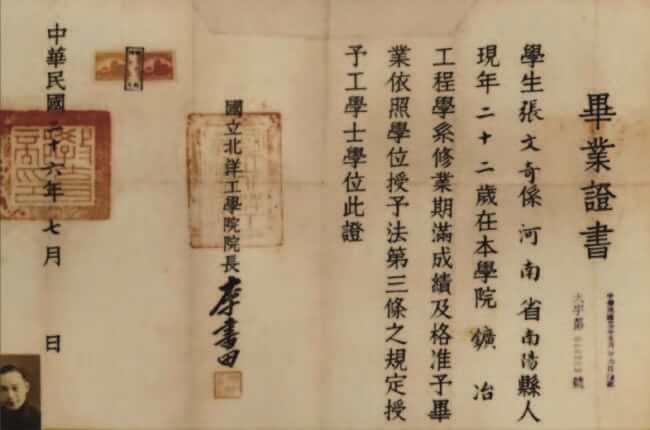 畢業證書
學生張文奇係河南省南陽縣人
現年二十二歲在本學院鑛冶
工程學系修業期滿成績及格准予畢
業依照學位授予法第三條之規定授
予工學士學位此證
國立北洋工學院院長李書田
中華民國二十六年七月 日